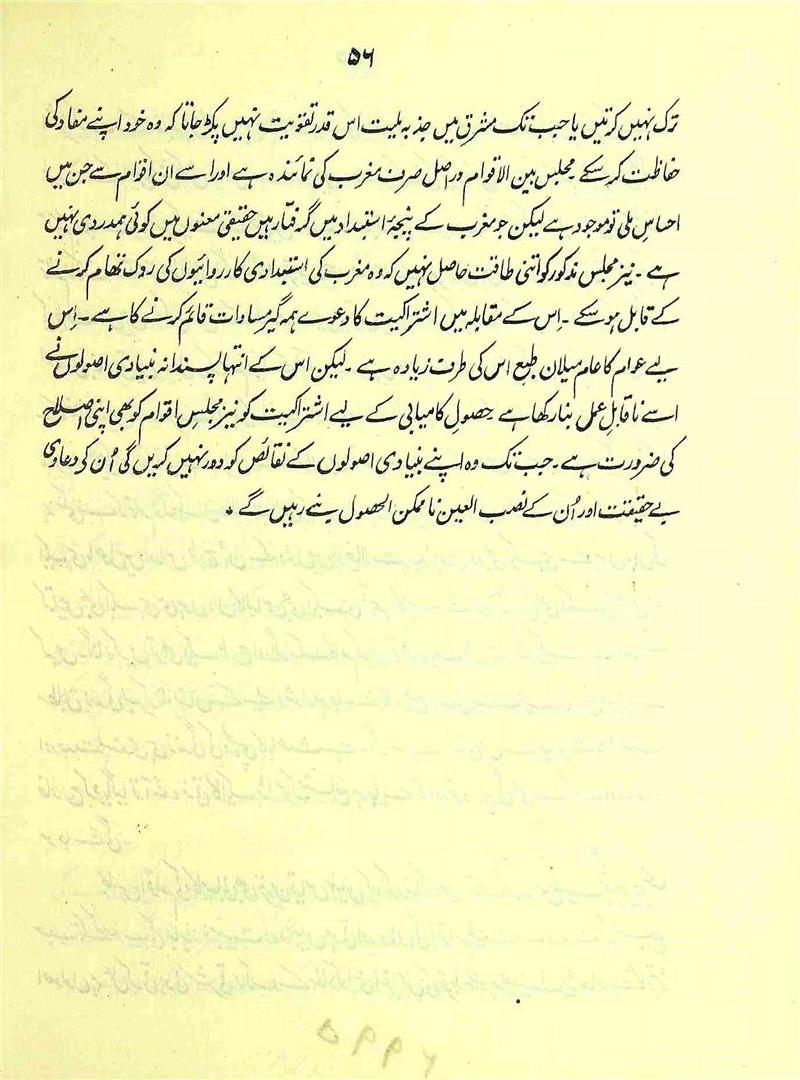 ۵۶
ترک نہیں کرتیں یا جب تک مشرق میں جذبہ ملیت اس قدر تقویت نہیں پکڑ جاتا کہ وہ خود اپنے مفاد کی
حفاظت کر سکے۔ مجلس بین الاقوام دراصل صرف مغرب کی نمائندہ ہے اور اسے ان اقوام سے جن میں
احساسِ ملی تو موجود ہے لیکن جو مغرب کے پنجۂ استبداد میں گرفتار ہیں حقیقی معنوں میں کوئی ہمدردی نہیں
ہے۔ نیز مجلس مذکور کو اتنی طاقت حاصل نہیں کہ وہ مغرب کی استبدادی کارروائیوں کی روک تھام کرنے
کے قابل ہو سکے۔ اِس کے مقابلہ میں اشتراکیت کا دعوےٰ ہمہ گیر مساوات قائم کرنے کا ہے۔ اِس
لیے عوام کا عام میلان طبع اس کی طرف زیادہ ہے۔ لیکن اس کے انتہا پسندانہ بنیادی اصولوں نے
اسے ناقابلِ عمل بنا رکھا ہے حصولِ کامیابی کے لیے اشتراکیت کو نیز مجلسِ اقوام کو بھی اپنی اصلاح
کی ضرورت ہے۔ جب تک وہ اپنے بنیادی اصولوں کے نقائص کو دور نہیں کریں گی اُن کی دعاوی
بے حقیقت اور اُن کے نصب العین ناممکن الحصول بنے رہیں گے *
۵۹۹۶